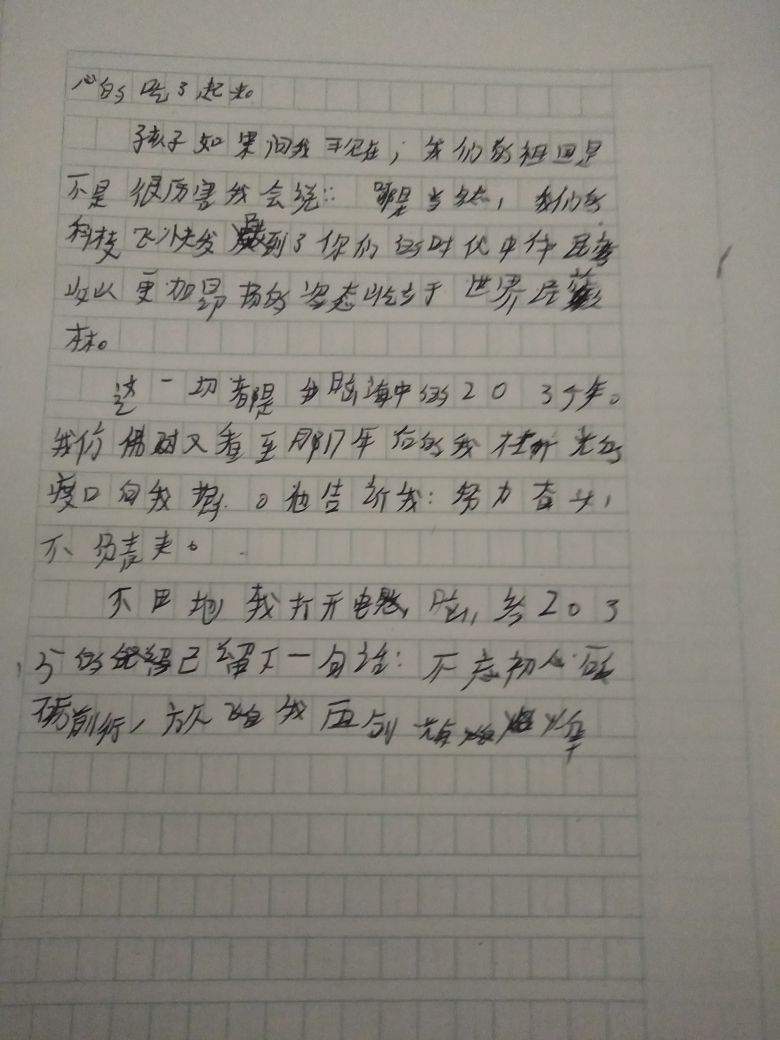 心的吃了起来。
孩子如果问我现在，我们的祖国是
不是很厉害我会说：那是当然，我们的
科技飞快发展到了你们的时代中华民族
必以更加昂扬的姿态屹立于世界民族
林。
这一切都是我脑海中的2035年。
我仿佛又看至那17年后的我在时光的
渡口向我挥。他告诉我：努力奋斗，
不负
不由地我打开电脑，给203
5的自己留下一句话：不忘初心砥
砺前行，方